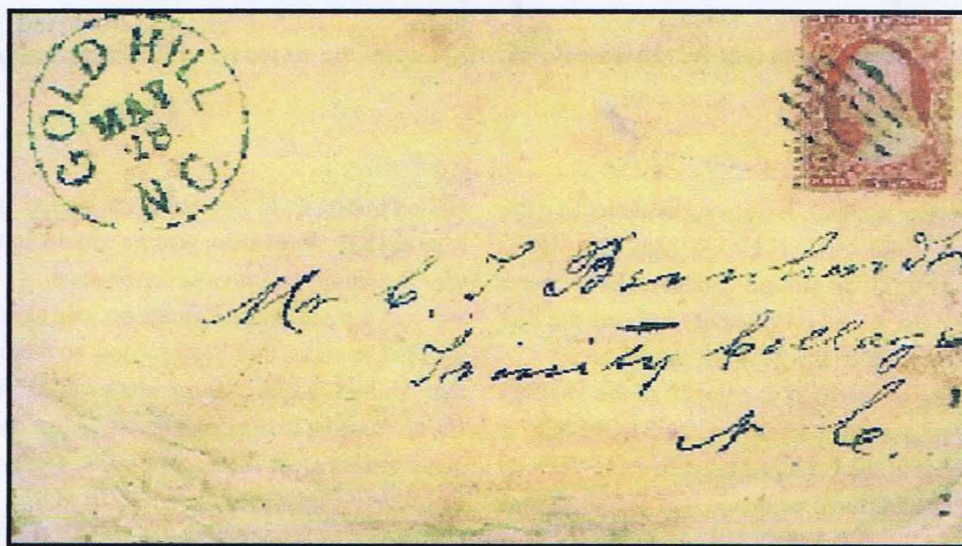 GOLD HILL
MAY
18
N.C.
Mr C. J Bernhardt
Trinity Collage
N C.